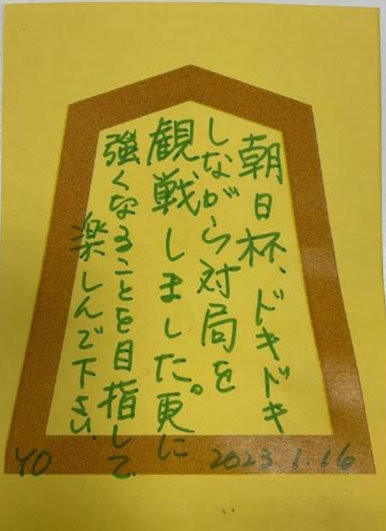 朝日杯、ドキドキ
しながら対局を
観戦しました。更に
強くなることを目指して
楽しんで下さい。
YO
2023.1.16